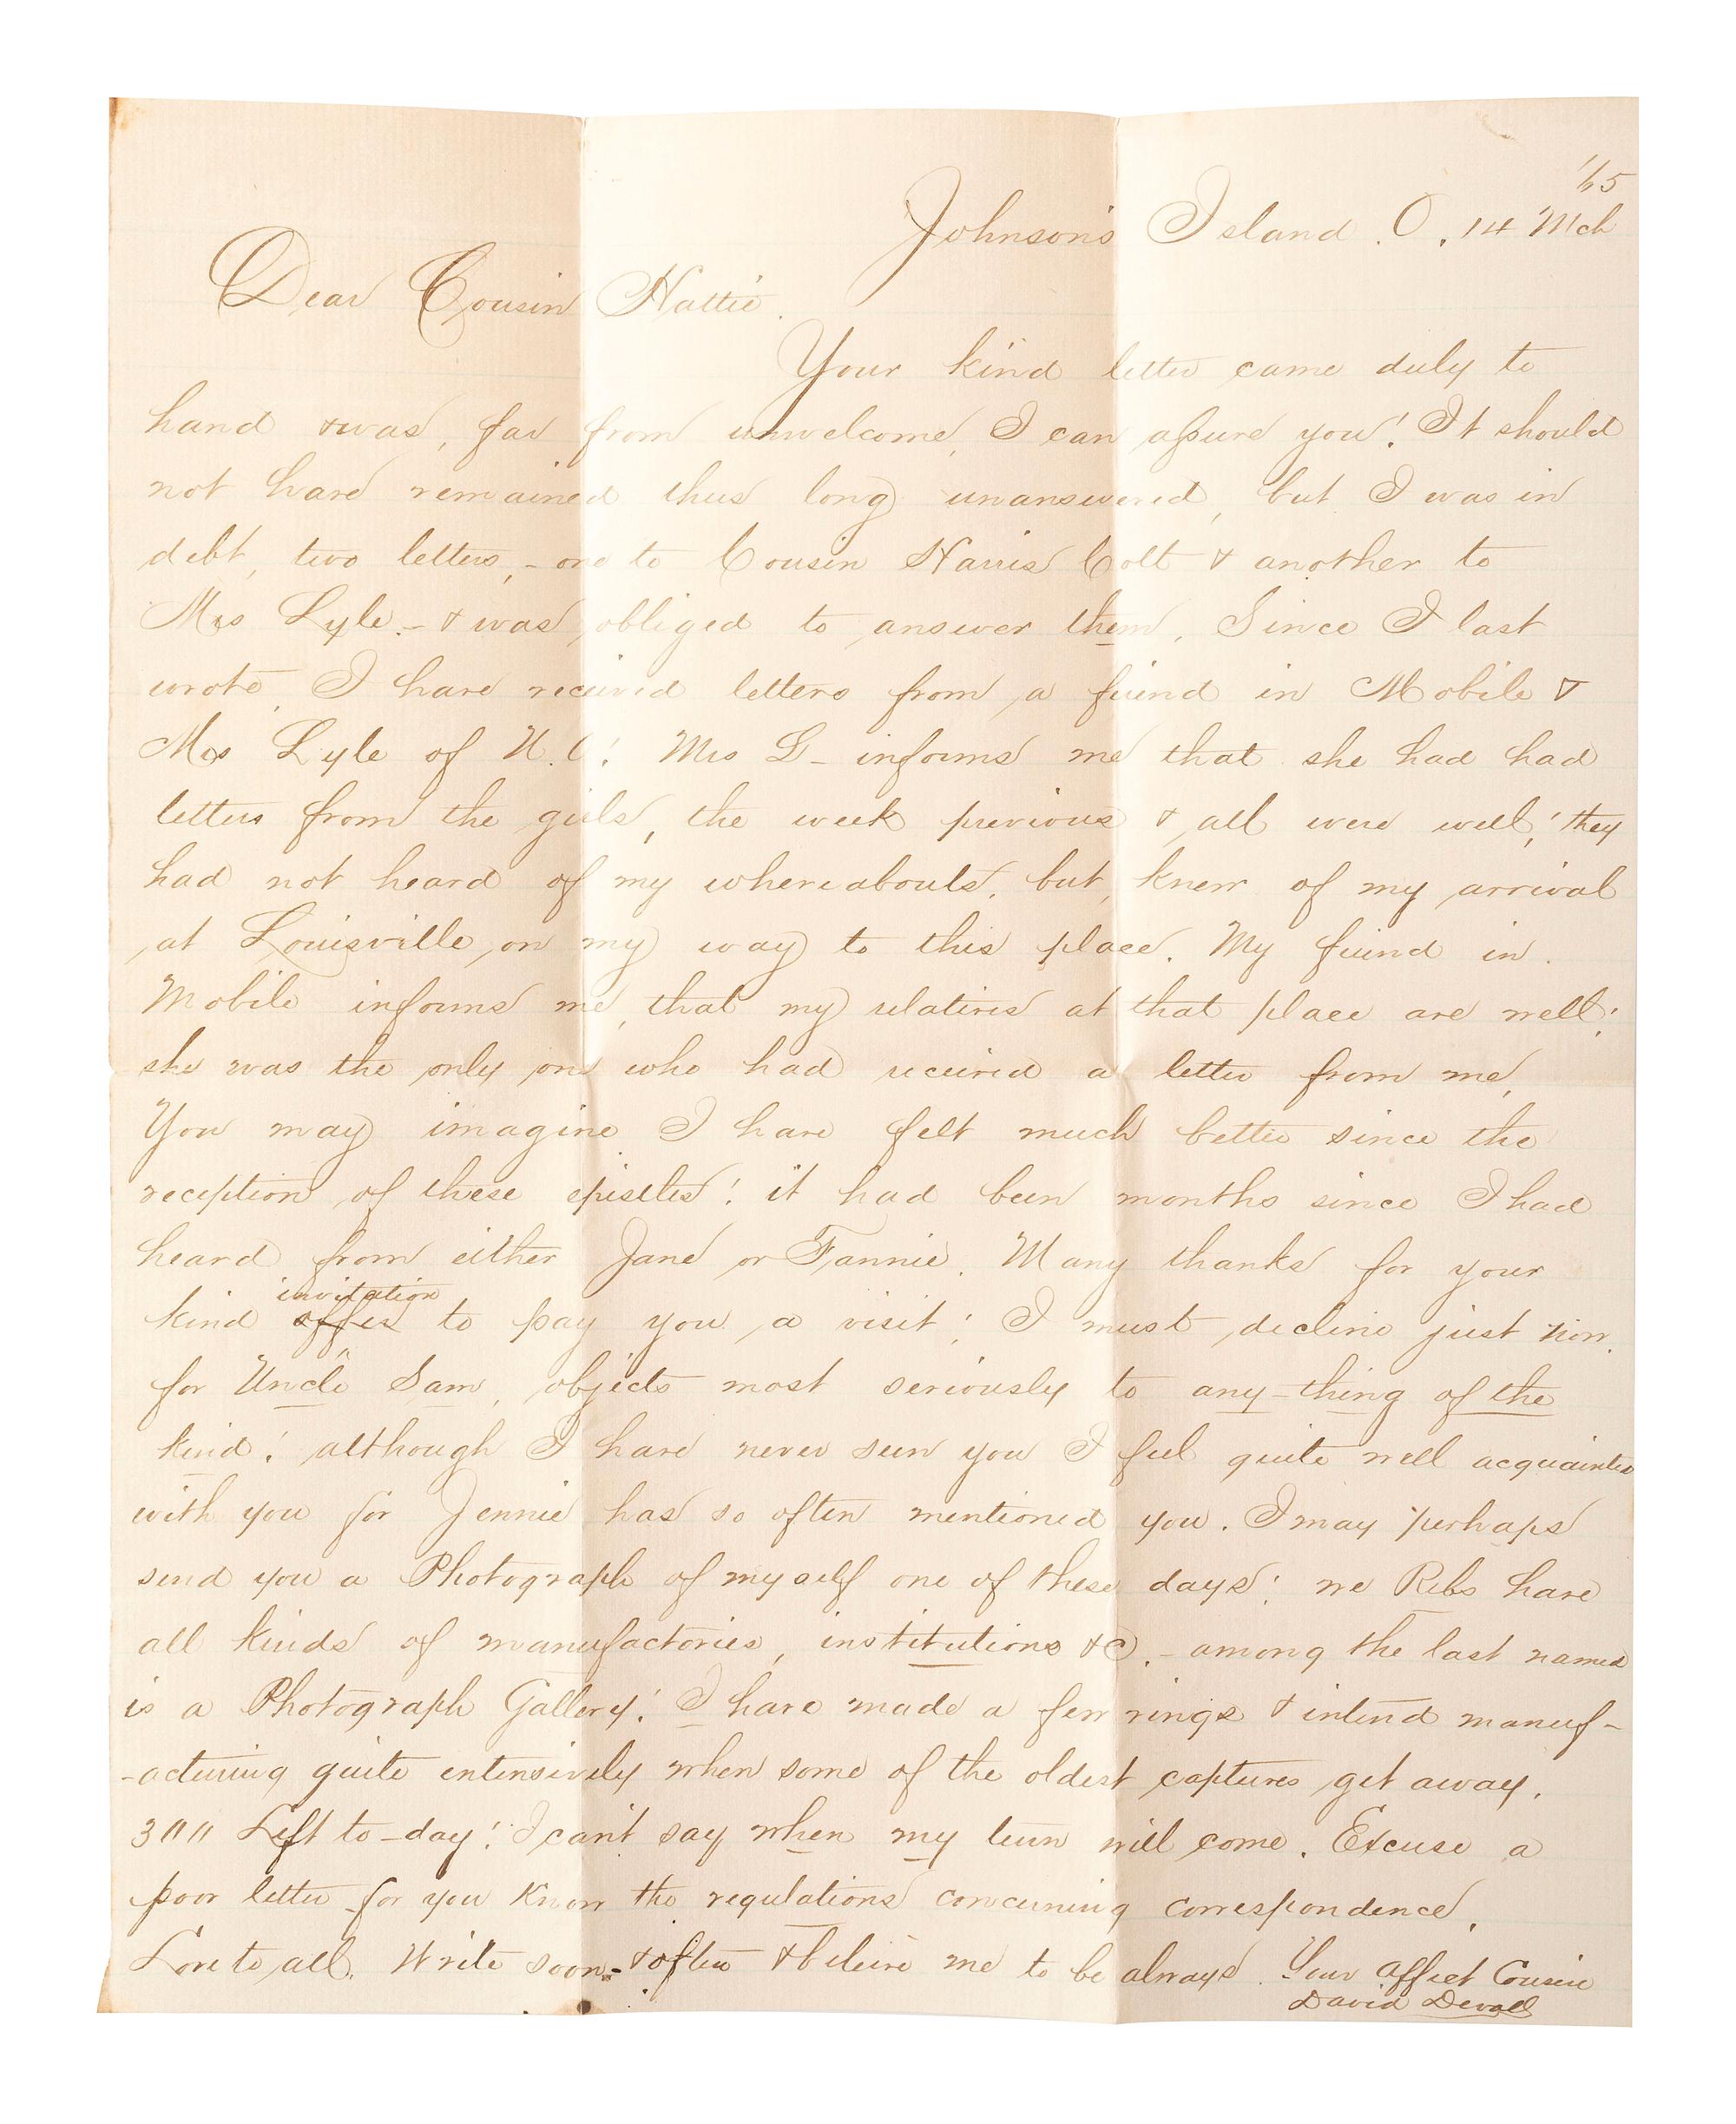 '65
Johnson's Island. O. 14 Mch
Dear Cousin Hattie.
Your kind letter came duly to
hand & was, far from unwelcome, I can assure you! It should
not have remained thus long unanswered, but I was in
debt, two letters, - one to Cousin Harris Colt & another to
Mrs Lyle - & was obliged to answer them. Since I last
wrote, I have received letters from a friend in Mobile &
Mrs Lyle of N.C! Mrs L - informs me that she had had
letters from the girls, the week previous & all were well; they
had not heard of my whereabouts, but, knew of my arrival
at Louisville, on my way to this place. My friend in.
Mobile informs me, that my relatives at that place are well;
she was the only one who had received a letter from me,
You may imagine I have felt much better since the
reception of these epistles! it had been months since I had
heard from either Jane or Fannie. Many thanks for your
invitation
kind offer to pay you a visit; I must decline just now,
for "Uncle Sam, objects most seriously to any-thing of the
kind! although I have never seen you I feel quite well acquainted
with you for Jennie has so often mentioned you. I may perhaps
send you a Photograph of myself one of these days; we Rebs have
all kinds of manufactories, institutions &c. - among the last named
is a Photograph Gallery! I have made a few rings & intend manuf-
-acturing quite extensively when some of the oldest captures get away.
300 Left to-day! I can't say when my turn will come. Excuse a
poor letter for you know the regulations concerning correspondence.
Love to all. Write soon - & often & believe me to be always. Your affect Cousin
David Devall